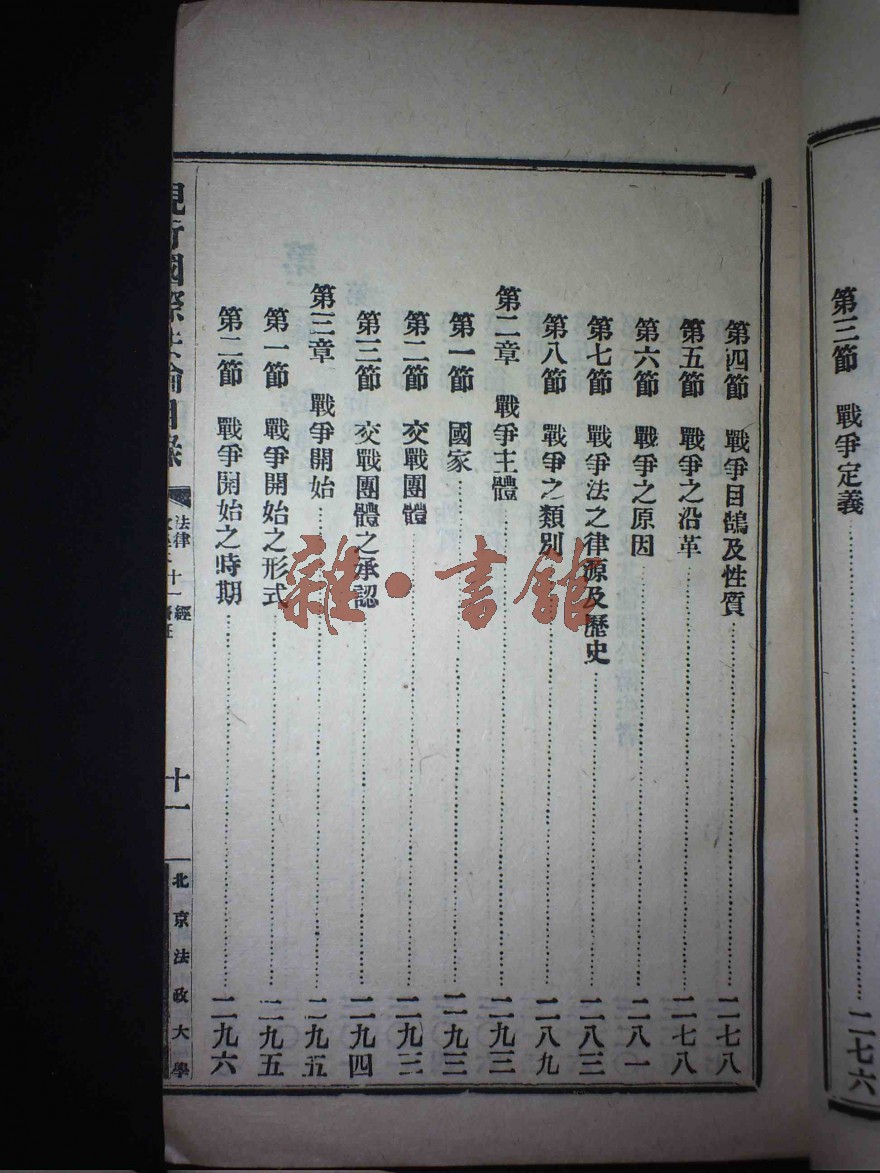 第三節 戰爭定義……二七六
第四節 戰爭目鵠及性質……二七八
第五節 戰爭之沿革……二七八
第六節 戰爭之原因……二八一
第七節 戰爭法之律源及歷史……二八三
第八節 戰爭之類別……二八九
第二章 戰爭主體……二九三
第一節 國家……二九三
第二節 交戰團體……二九三
第三節 交戰團體之承認……二九四
第三章 戰爭開始……二九五
第一節 戰爭開始之形式……二九五
第二節 戰爭開始之時期……二九六
現行國際法論目錄
法律
經
十一
北京法政大學
雜·書館